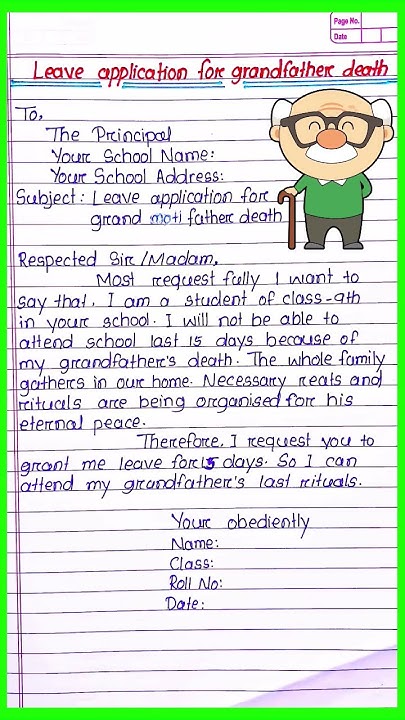 Page No.
Date
Leave application for grandfather death
To,
The Principal
Your School Name:
Your School Address:
Subject: Leave application for
grand moti father death
Respected Sir/Madam,
Most request fully I want to
say that, I am a student of class-9th
in your school. I will not be able to
attend school last 15 days because of
my grandfather's death. The whole family
gathers in our home. Necessary reats and
rituals are being organised for his
eternal peace.
Therefore, I request you to
grant me leave for 15 days. So I can
attend my grandfather's last rituals.
Your obediently
Name:
Class:
Roll No:
Date: